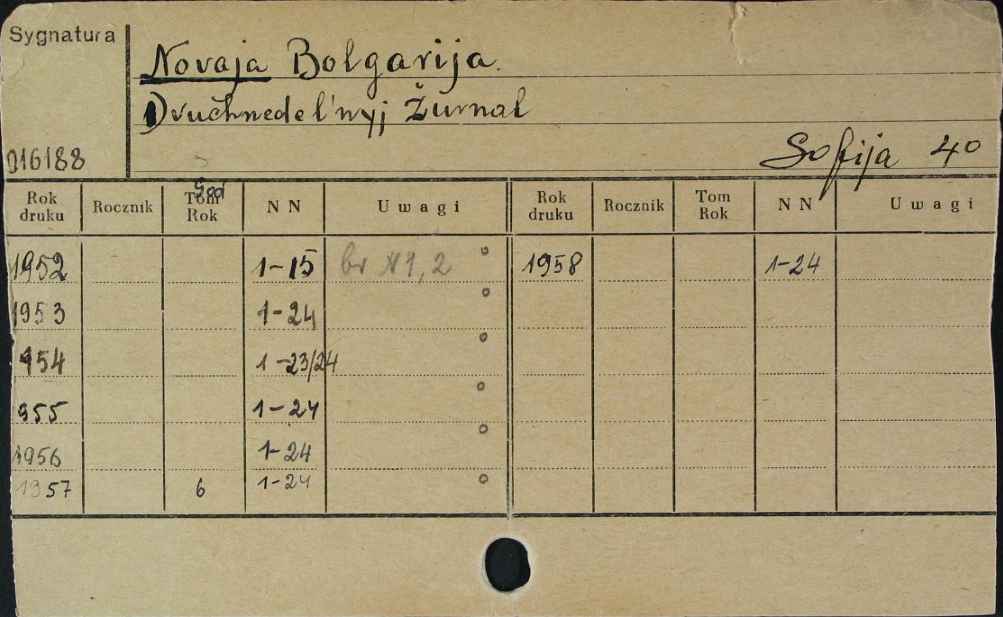 Sygnatura
Novaja Bolgarija.
Dvuchnedel'nyj Žurnal
916188
Sofija 4o
God
Rok druku Rocznik Tom Rok NN Uwagi Rok druku Rocznik Tom Rok NN Uwagi
1952 1-15 br N 1, 2 1958 1-24
1953 1-24
954 1-23/24
955 1-24
1956 1-24
1957 6 1-24